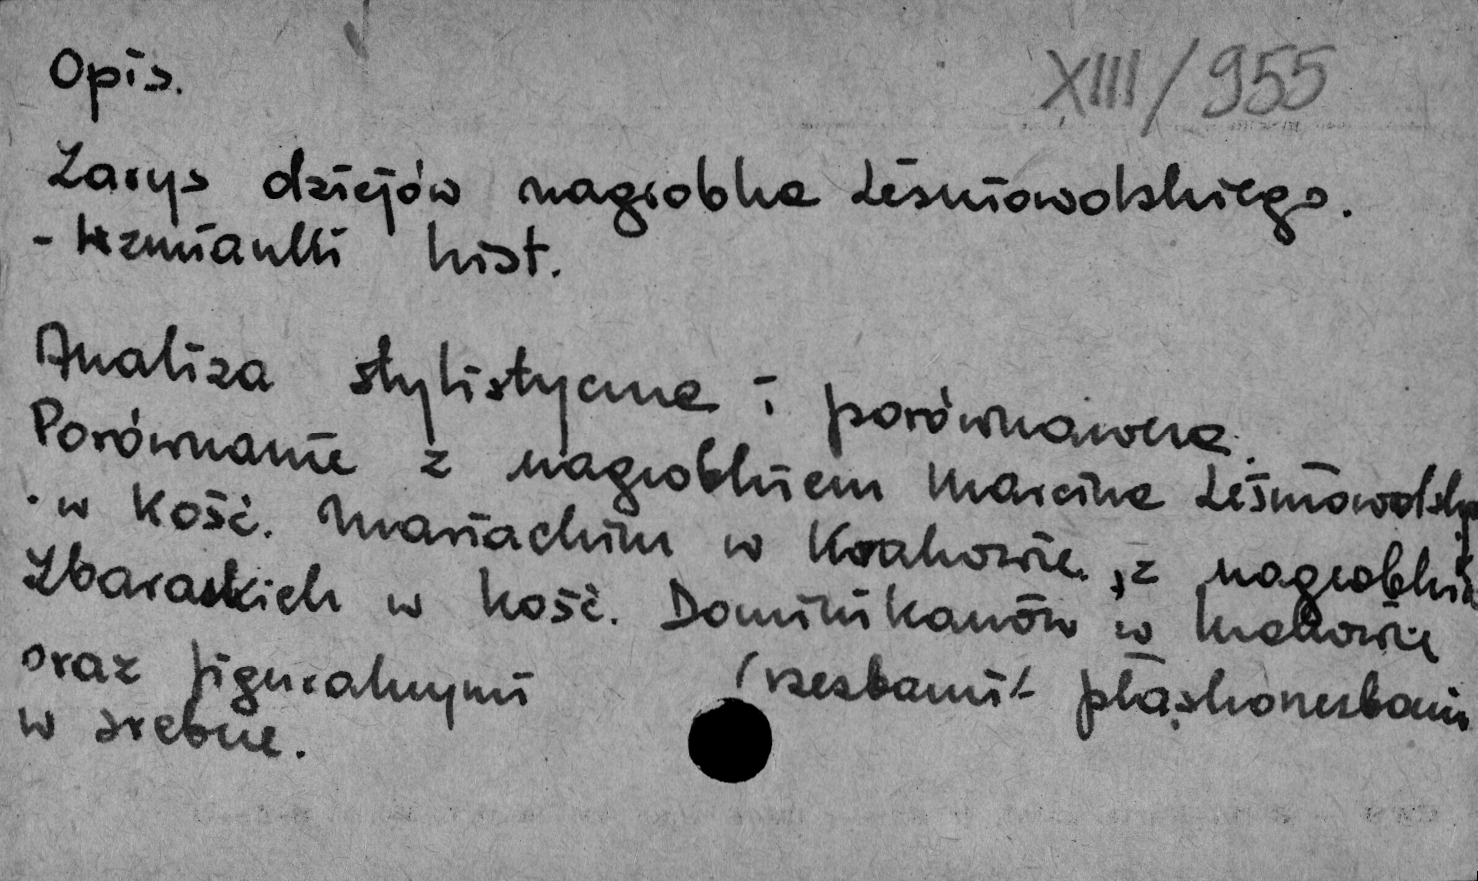 XIII/955
Opis.
Zarys dziejów nagrobka Leśniowolskiego.
- Wzmianki hist.
Analiza stylistyczna i porównawcza.
Porównanie z nagrobkiem Marcina Leśniowolsk
w Kość. Mariackim w Krakowie, z nagrobki
Zbaraskich w kość. Dominikanów w Krakowie
oraz figuralnymi (rzeźbami - płaskorzeźbami
w srebrze.